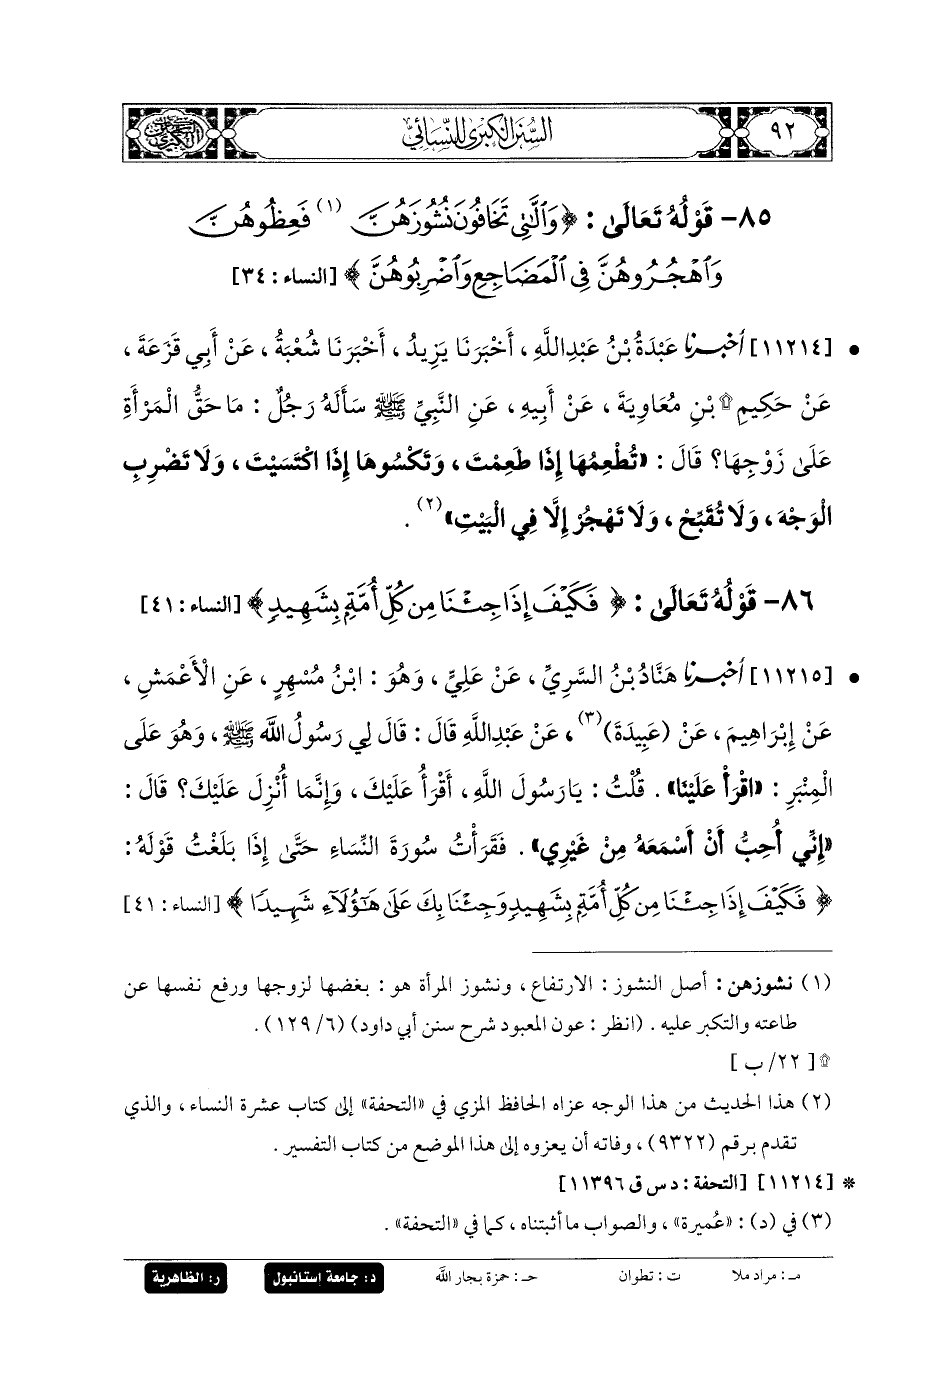 ٩٢
السُّنَنُ الكُبْرَى لِلنَّسَائِيِّ
٨٥- قَوْلُهُ تَعَالَى : ﴿ وَاللَّاتِي تَخَافُونَ نُشُوزَهُنَّ (١) فَعِظُوهُنَّ
وَاهْجُرُوهُنَّ فِي الْمَضَاجِعِ وَاضْرِبُوهُنَّ ﴾ [النساء : ٣٤]
• [١١٢١٤] أَخْبَرَنَا عَبْدَةُ بْنُ عَبْدِاللَّهِ ، أَخْبَرَنَا يَزِيدُ ، أَخْبَرَنَا شُعْبَةُ ، عَنْ أَبِي قَزَعَةَ ،
عَنْ حَكِيمِ ۩ بْنِ مُعَاوِيَةَ ، عَنْ أَبِيهِ ، عَنِ النَّبِيِّ ﷺ سَأَلَهُ رَجُلٌ : مَا حَقُّ الْمَرْأَةِ
عَلَى زَوْجِهَا؟ قَالَ : «تُطْعِمُهَا إِذَا طَعِمْتَ ، وَتَكْسُوهَا إِذَا اكْتَسَيْتَ ، وَلَا تَضْرِبِ
الْوَجْهَ ، وَلَا تُقَبِّحْ ، وَلَا تَهْجُرْ إِلَّا فِي الْبَيْتِ» (٢) .
٨٦- قَوْلُهُ تَعَالَى : ﴿ فَكَيْفَ إِذَا جِئْنَا مِن كُلِّ أُمَّةٍ بِشَهِيدٍ ﴾ [النساء : ٤١]
• [١١٢١٥] أَخْبَرَنَا هَنَّادُ بْنُ السَّرِيِّ ، عَنْ عَلِيٍّ ، وَهُوَ : ابْنُ مُسْهِرٍ ، عَنِ الْأَعْمَشِ ،
عَنْ إِبْرَاهِيمَ ، عَنْ (عَبِيدَةَ) (٣) ، عَنْ عَبْدِاللَّهِ قَالَ : قَالَ لِي رَسُولُ اللَّهِ ﷺ ، وَهُوَ عَلَى
الْمِنْبَرِ : «اقْرَأْ عَلَيْنَا» . قُلْتُ : يَارَسُولَ اللَّهِ ، أَقْرَأُ عَلَيْكَ ، وَإِنَّمَا أُنْزِلَ عَلَيْكَ؟ قَالَ :
«إِنِّي أُحِبُّ أَنْ أَسْمَعَهُ مِنْ غَيْرِي» . فَقَرَأْتُ سُورَةَ النِّسَاءِ حَتَّى إِذَا بَلَغْتُ قَوْلَهُ :
﴿ فَكَيْفَ إِذَا جِئْنَا مِن كُلِّ أُمَّةٍ بِشَهِيدٍ وَجِئْنَا بِكَ عَلَى هَٰؤُلَاءِ شَهِيدًا ﴾ [النساء : ٤١]
(١) نشوزهن : أصل النشوز : الارتفاع ، ونشوز المرأة هو : بغضها لزوجها ورفع نفسها عن
طاعته والتكبر عليه . (انظر : عون المعبود شرح سنن أبي داود) (٦/ ١٢٩) .
۩ [ ٢٢/ ب ]
(٢) هذا الحديث من هذا الوجه عزاه الحافظ المزي في «التحفة» إلى كتاب عشرة النساء ، والذي
تقدم برقم (٩٣٢٢) ، وفاته أن يعزوه إلى هذا الموضع من كتاب التفسير .
* [١١٢١٤] [التحفة : د س ق ١١٣٩٦]
(٣) في (د) : «عُميرة» ، والصواب ما أثبتناه ، كما في «التحفة» .
مـ : مراد ملا ت : تطوان حـ : حمزة بجار الله د : جامعة إستانبول ر : الظاهرية